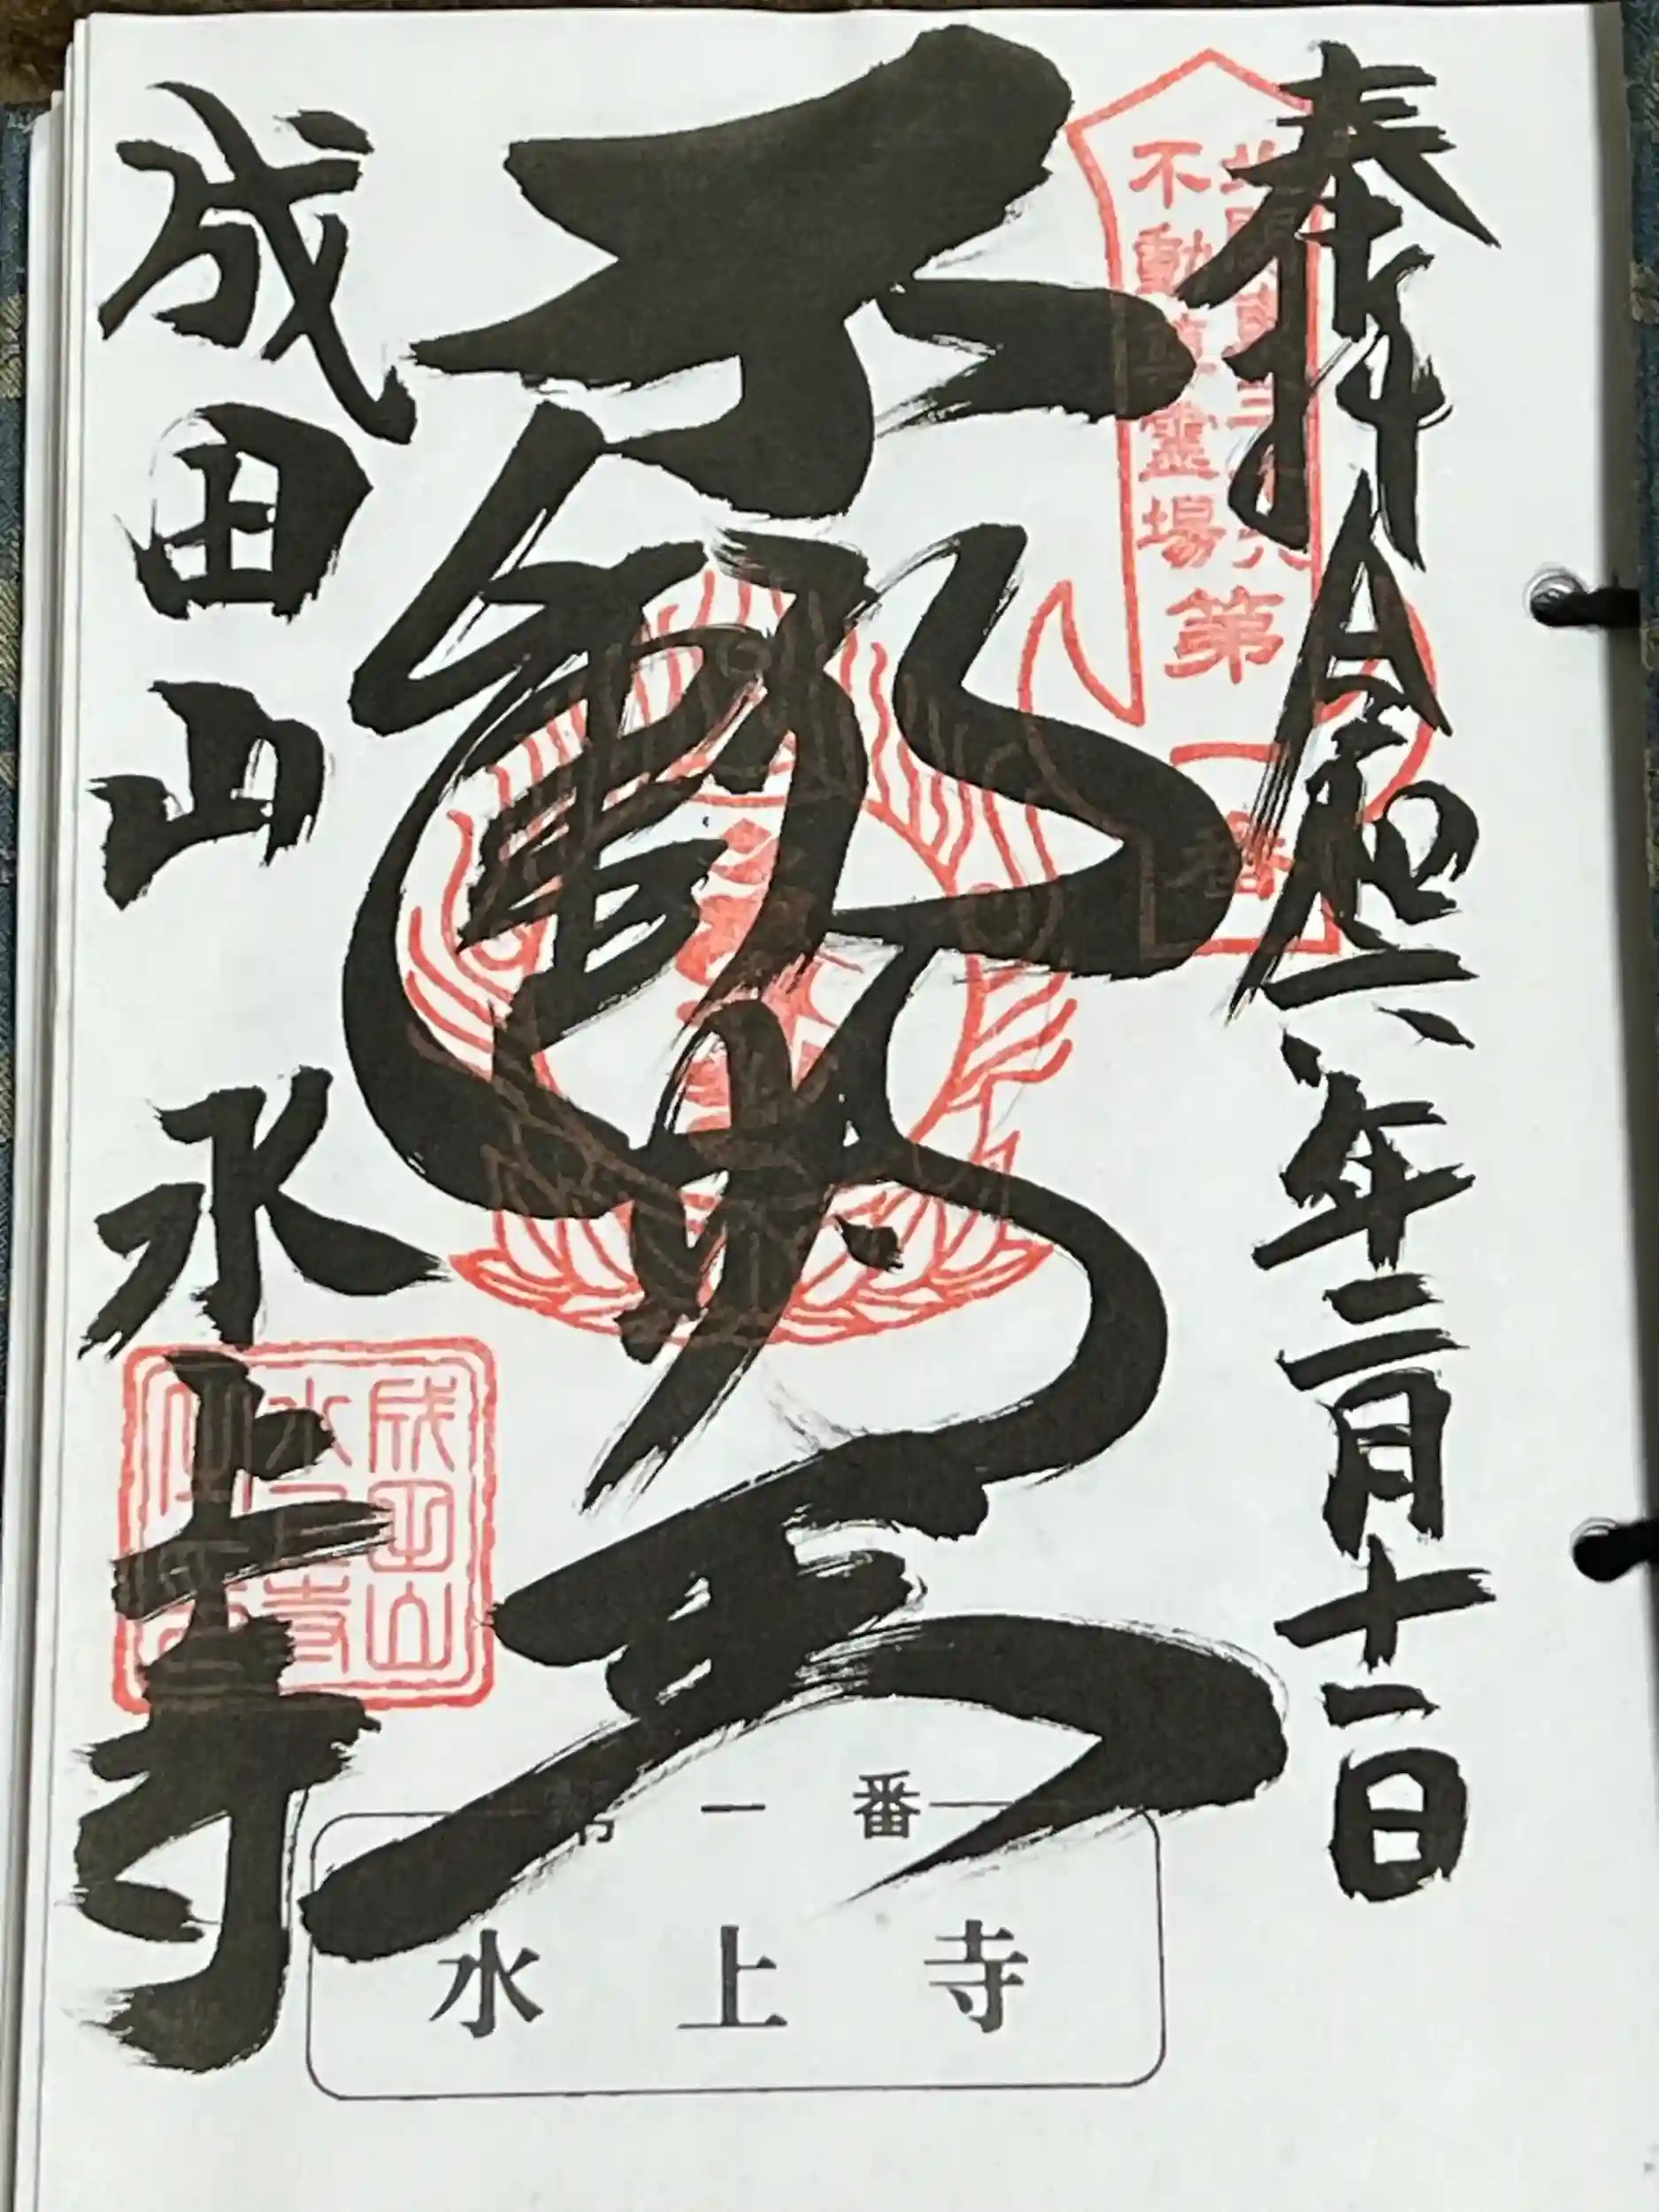 奉拝 令和六年二月十一日
北関東三十六
不動尊霊場
第一番
不動明王
成田山 水上寺
成田山
水上寺
第一番
水上寺